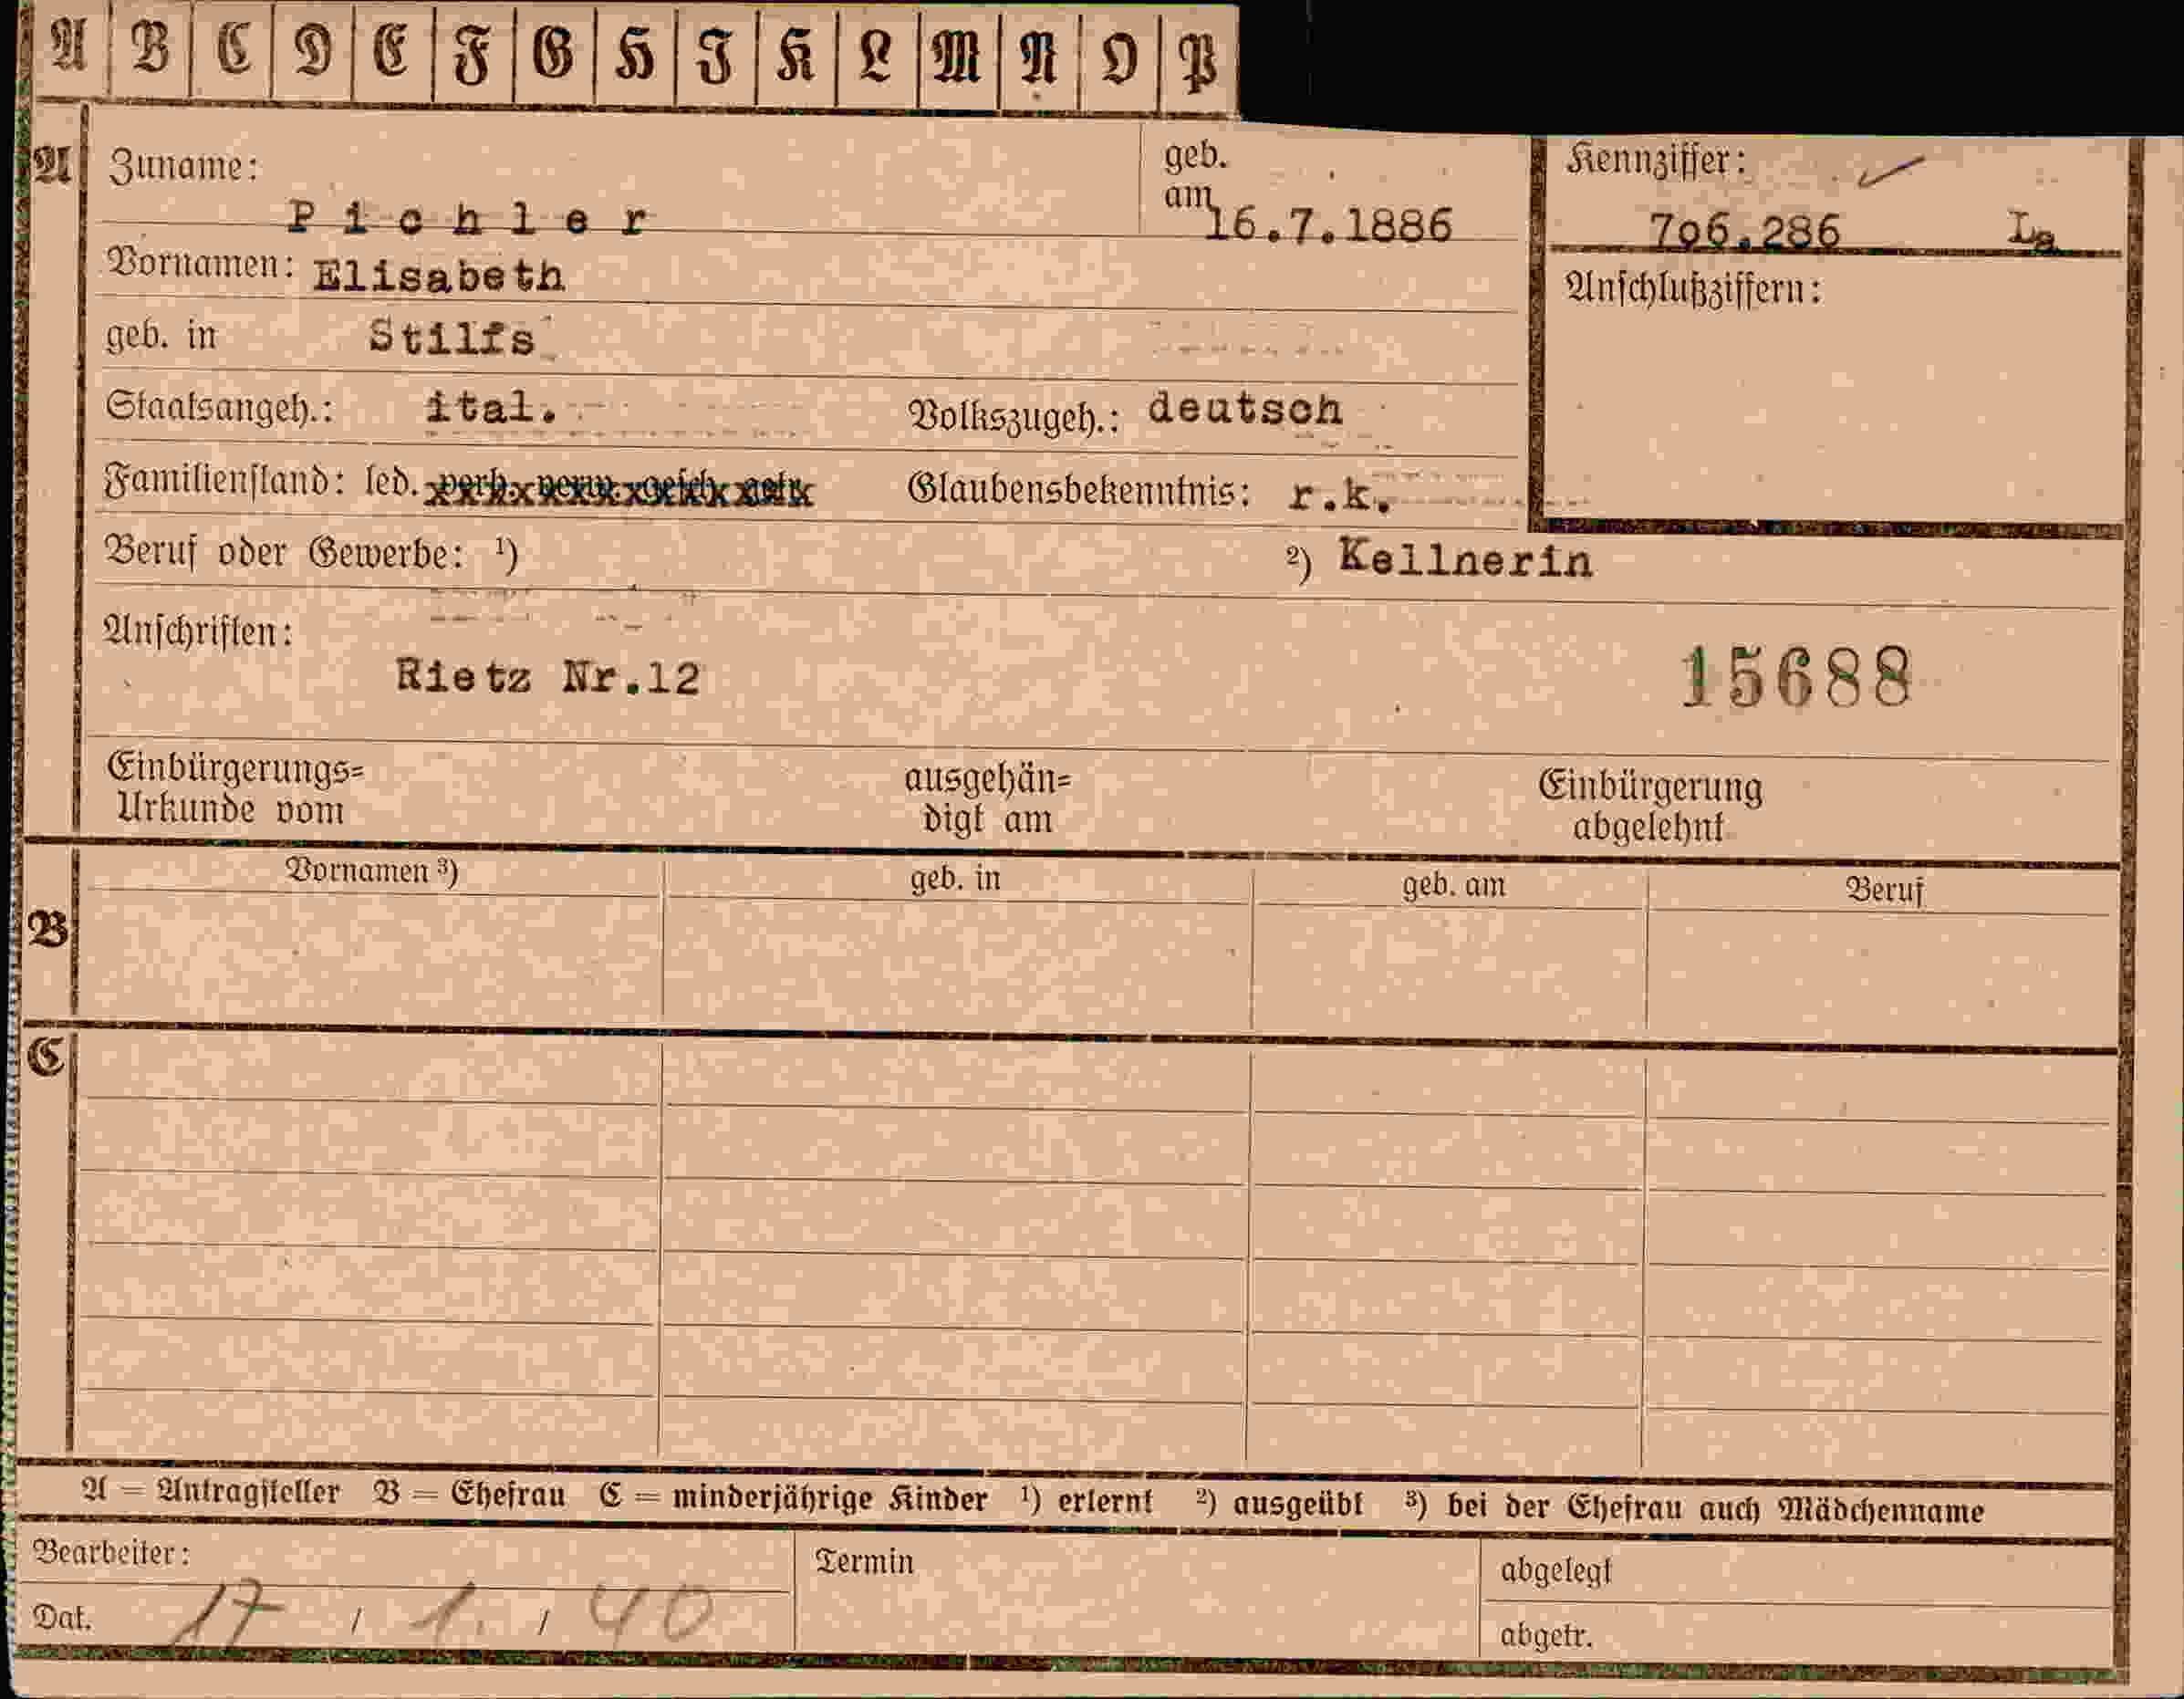 A B C D E F G H I K L M N O P
A Zuname: P i c h l e r geb. am 16.7.1886
Kennziffer: 706.286 La
Vornamen: Elisabeth
Anschlußziffern:
geb. in Stilfs
Staatsangeh.: ital. Volkszugeh.: deutsch
Familienstand: led. verh. verw. gesch. getr. Glaubensbekenntnis: r.k.
Beruf oder Gewerbe: ¹) ²) Kellnerin
Anschriften:
Rietz Nr.12 15688
Einbürgerungs= ausgehän= Einbürgerung
Urkunde vom digt am abgelehnt
B Vornamen ³) geb. in geb. am Beruf
C
A = Antragsteller B = Ehefrau C = minderjährige Kinder ¹) erlernt ²) ausgeübt ³) bei der Ehefrau auch Mädchenname
Bearbeiter: Termin abgelegt
Dat. 17 / 1. / 40 abgetr.